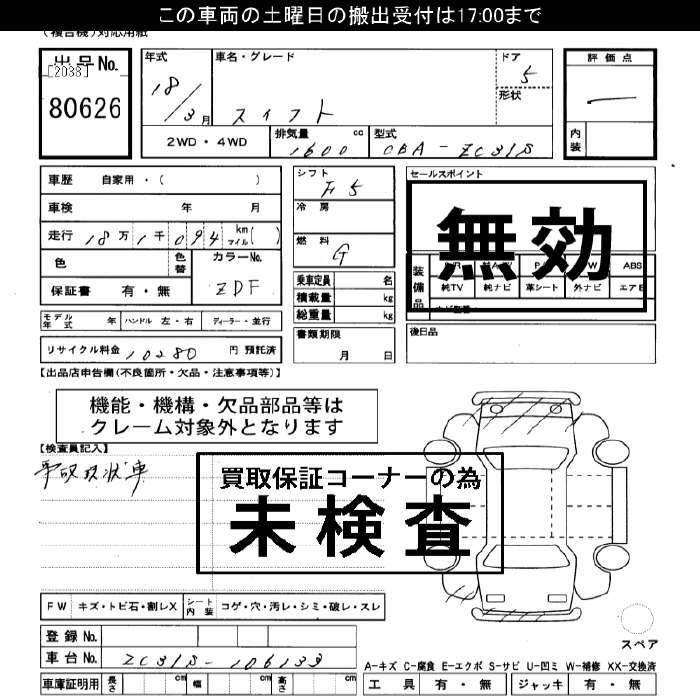 この車両の土曜日の搬出受付は17:00まで
(複合機)対応用紙
出品No.
[2038]
80626
年式
18/3月
車名・グレード
スイフト
ドア
5
形状
評価点
内装
2WD・4WD
排気量 1600 cc
型式 CBA-ZC31S
車歴 自家用・( )
車検 年 月
走行 18万1千094 km マイル( )
色
色替
カラーNo.
ZDF
保証書 有・無
シフト
F5
冷房
燃料
G
乗車定員 名
積載量 kg
総重量 kg
書類期限
月 日
セールスポイント
無効
装備品
ABS
純TV 純ナビ 革シート 外ナビ エアB
後日品
モデル年式 年 ハンドル 左・右 ディーラー・並行
リサイクル料金 10280 円 預託済
【出品店申告欄(不良箇所・欠品・注意事項等)】
機能・機構・欠品部品等は
クレーム対象外となります
【検査員記入】
事故現状車
買取保証コーナーの為
未検査
FW キズ・トビ石・割レX シート内装 コゲ・穴・汚レ・シミ・破レ・スレ
スペア
登録No.
車台No. ZC31S-106133
A-キズ C-腐食 E-エクボ S-サビ U-凹ミ W-補修 XX-交換済
車庫証明用 長さ cm 幅 cm 高さ cm
工具 有・無 ジャッキ 有・無